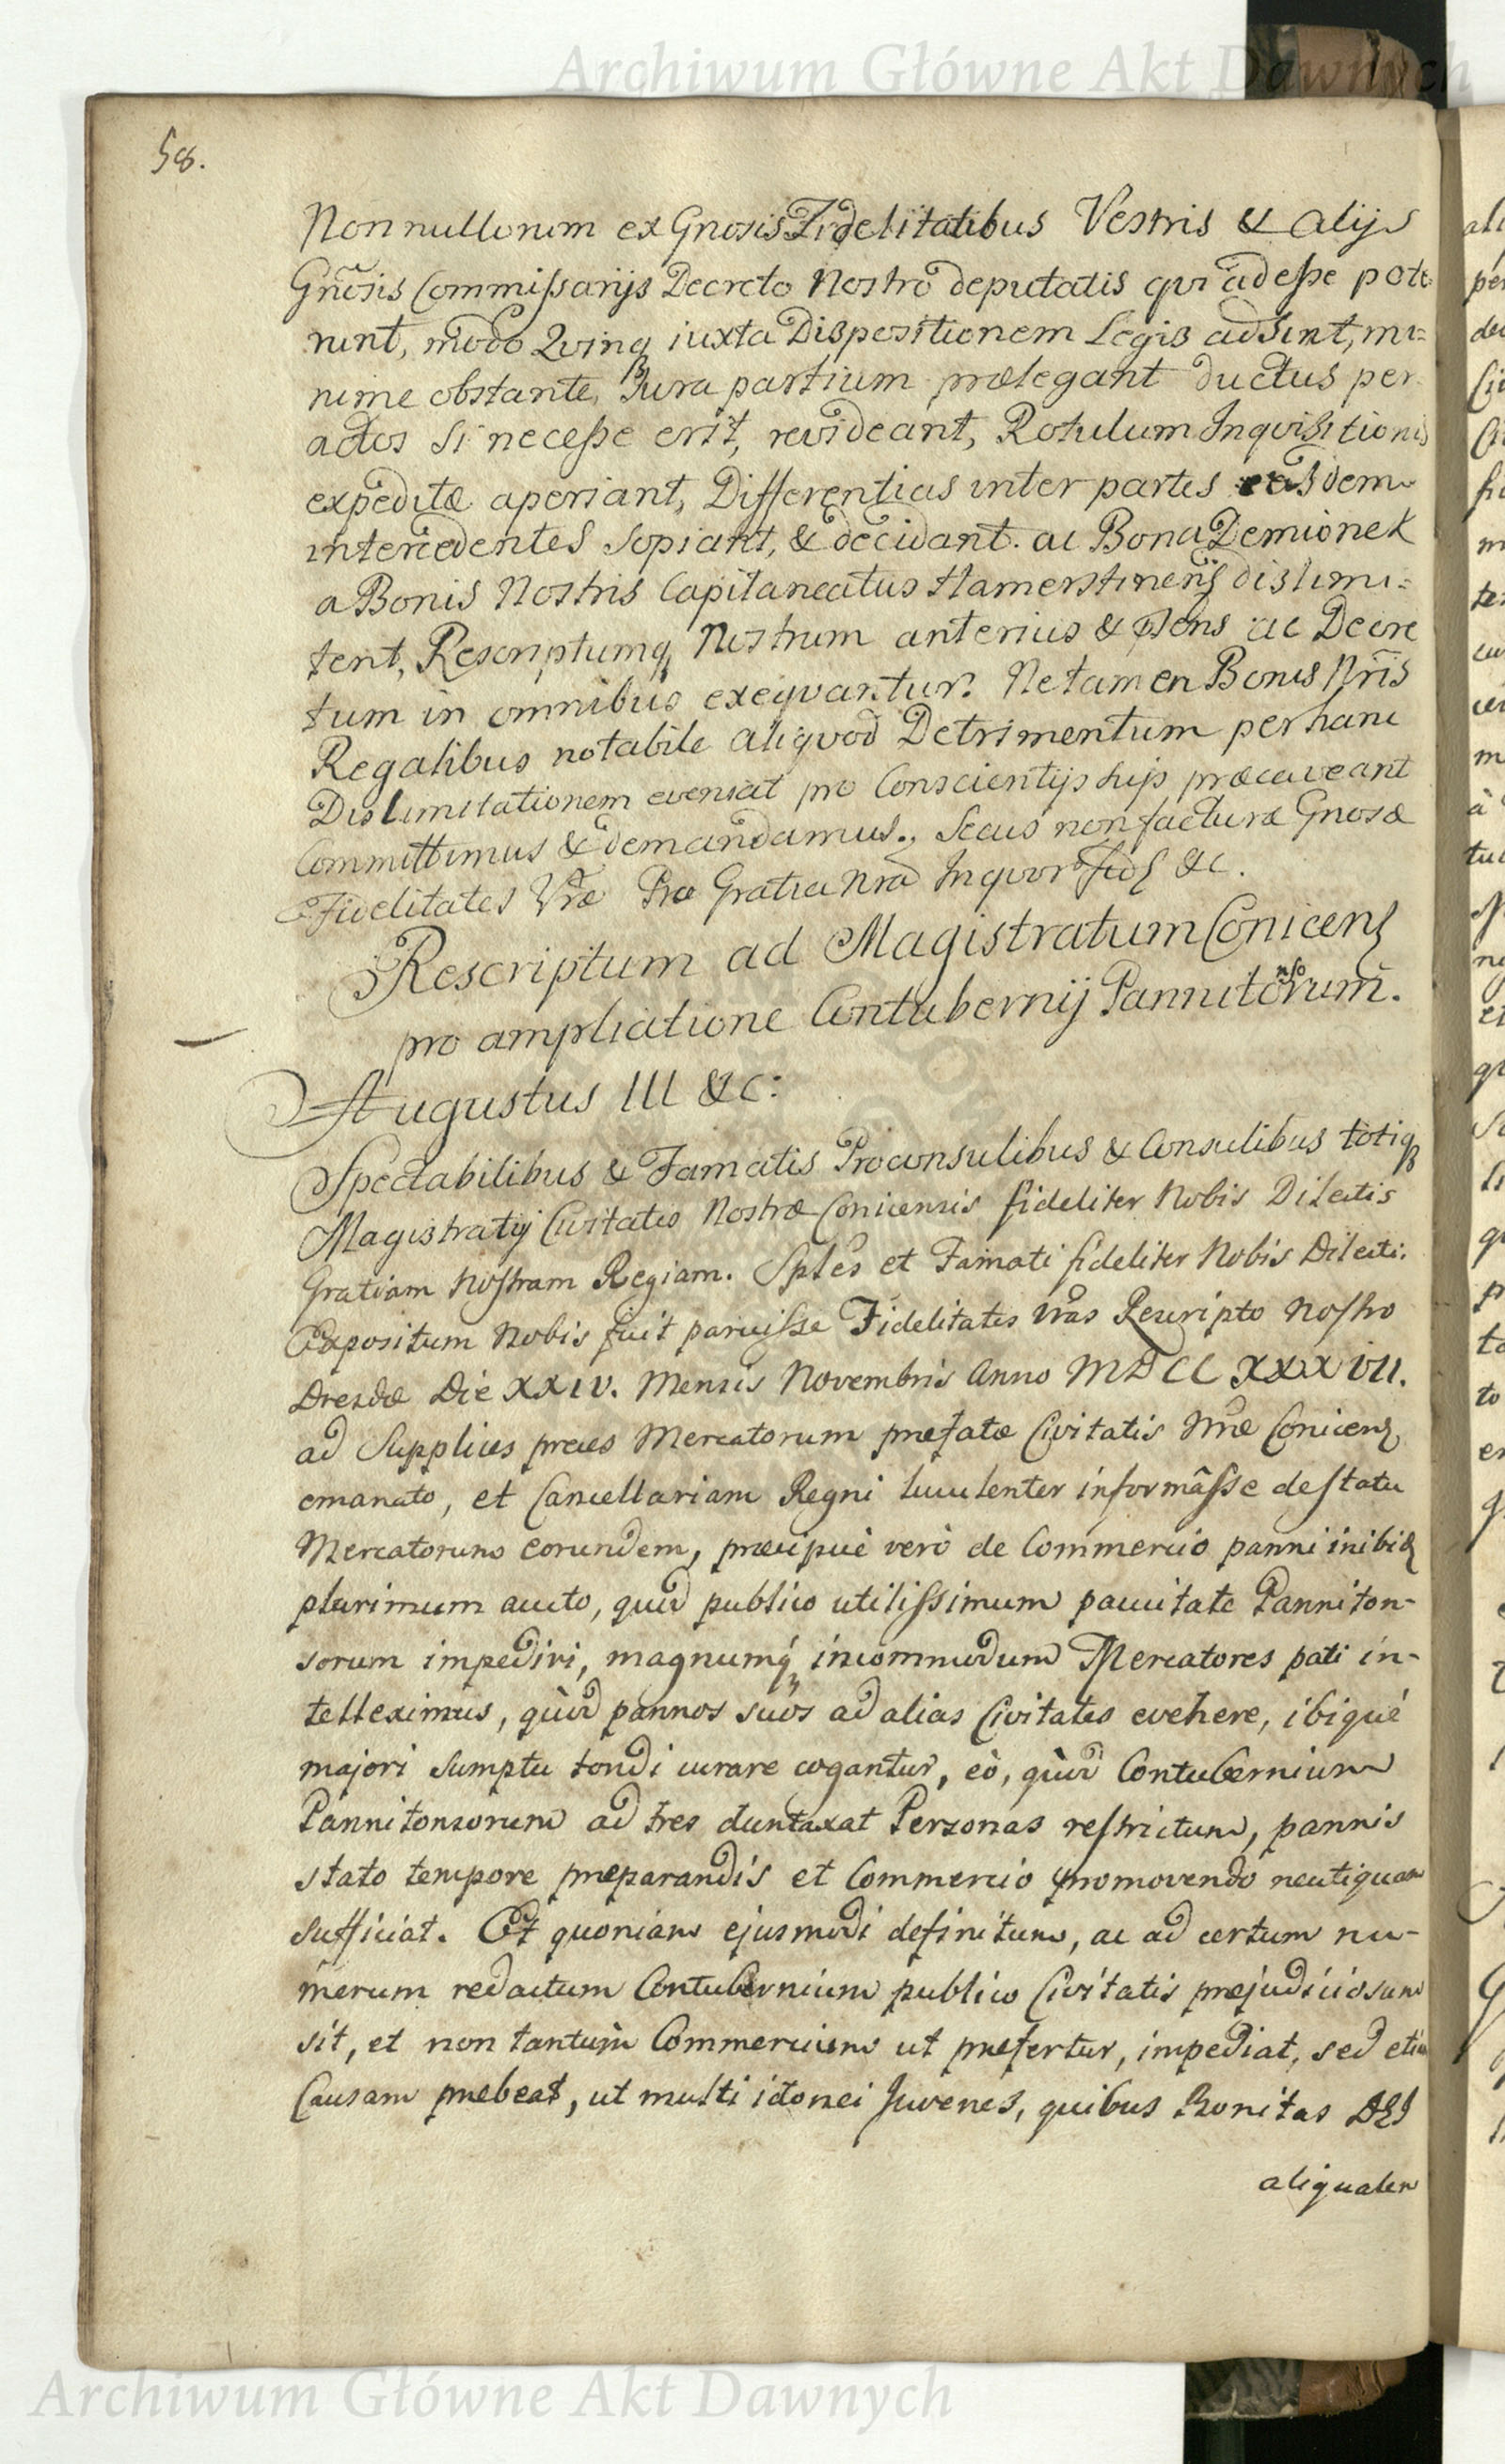 Archiwum Główne Akt Dawnych
58.
Nonnullorum ex Gnosis Fidelitatibus Vestris & alijs
Gnosis Commissarijs Decreto Nostro deputatis qui adesse pote
runt, modo Quinq iuxta Dispositionem Legis adsint, mi=
nime obstante, Jura partium prælegant ductus per
actos si necesse erit, revideant, Rotulum Inquisitionis
expeditæ aperiant, Differentias inter partes easdem
intercedentes sopiant, & decidant. ac Bona Demionek
a Bonis Nostris Capitaneatus Hamersteinens dislimi=
tent, Rescriptumq Nostrum anterius & pſens ac Decre
tum in omnibus exequantur. Ne tamen Bonis Nris
Regalibus notabile aliquod Detrimentum per hanc
Dislimitationem eveniat pro Conscientijs suis præcaveant
Committimus & demandamus., Secus non facturæ Gnosæ
Fidelitates Vræ Pro Gratia Nra In quor fid &c.
Rescriptum ad Magistratum Conicens
pro ampliatione Contubernij Pannitonsorum.
Augustus III &c:
Spectabilibus & Famatis Proconsulibus & Consulibus totiq
Magistratui Civitatis Nostræ Conicensis fideliter Nobis Dilectis
Gratiam Nostram Regiam. Sptes et Famati fideliter Nobis Dilecti.
Expositum Nobis fuit paruisse Fidelitates Vras Rescripto Nostro
Dresdæ Die XXIV. Mensis Novembris Anno MDCCXXXVII.
ad Supplices preces Mercatorum præfatæ Civitatis Nræ Conicens
emanato, et Cancellariam Regni luculenter informâsse de statu
Mercatorum eorundem, præcipuè verò de Commercio panni inibiq
plurimum aucto, quod publico utilissimum paucitate Panniton-
sorum impediri, magnumq́ incommodum Mercatores pati in-
telleximus, quòd pannos suos ad alias Civitates evehere, ibiqué
majori sumptu tondi curare cogantur, eò, quòd Contubernium
Pannitonsorum ad tres duntaxat Personas restrictum, pannis
stato tempore præparandis et Commercio promovendo neutiquam
sufficiat. Et quoniam ejusmodi definitum, ac ad certum nu-
merum redactum Contubernium publico Civitatis præjudiciosum
sit, et non tantùm Commercium ut præfertur, impediat, sed etiam
Causam præbeat, ut multi idonei Juvenes, quibus Bonitas DEI
aliqualem
Archiwum Główne Akt Dawnych